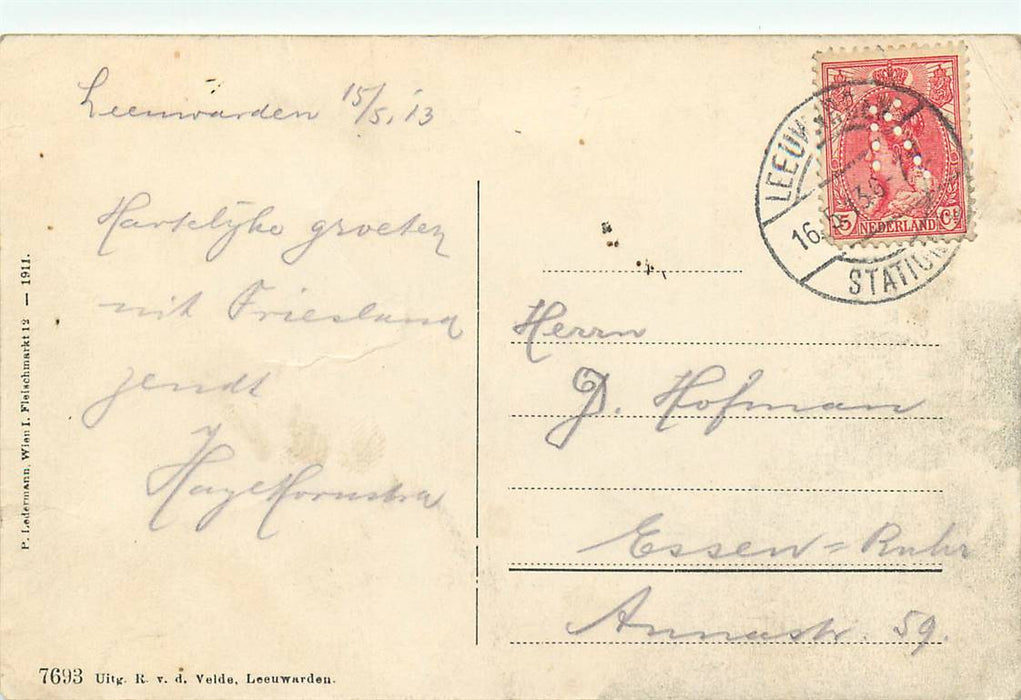 Leeuwarden 15/5.13
Hartelijke groeten
uit Friesland
zendt
Haye Hornstra
P. Ledermann, Wien I. Fleischmarkt 12 — 1911.
7693 Uitg. R. v. d. Velde, Leeuwarden.
LEEUWARDEN
16.5.13.6-
STATION
5 NEDERLAND Ct
Herrn
D. Hofman
Essen=Ruhr
Annastr. 59.